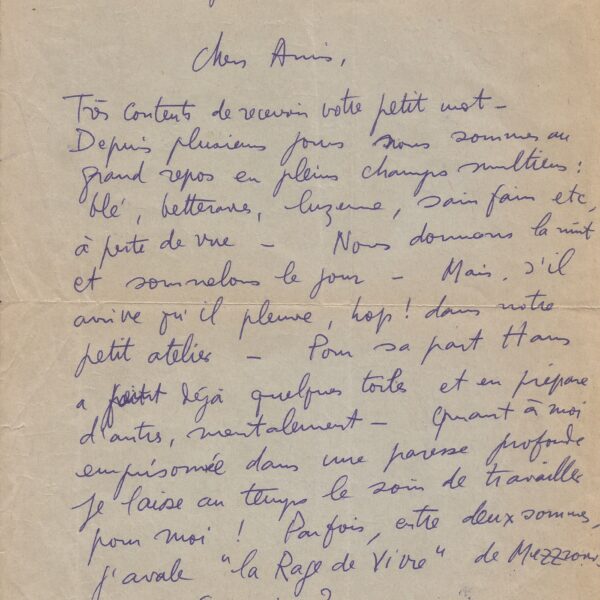 Chers Amis,
Très contents de recevoir votre petit mot –
Depuis plusieurs jours nous sommes au
grand repos en pleins champs multiens :
blé, betteraves, luzerne, sain foin etc,
à perte de vue – Nous dormons la nuit
et somnolons le jour – Mais, s'il
arrive qu'il pleuve, hop! dans notre
petit atelier – Pour sa part Hans
a déjà quelques toiles et en prépare
d'autres, mentalement – Quant à moi
emprisonnée dans une paresse profonde
je laisse au temps le soin de travailler
pour moi ! Parfois, entre deux sommes,
j'avale "la Rage de Vivre" de Mezzrow,